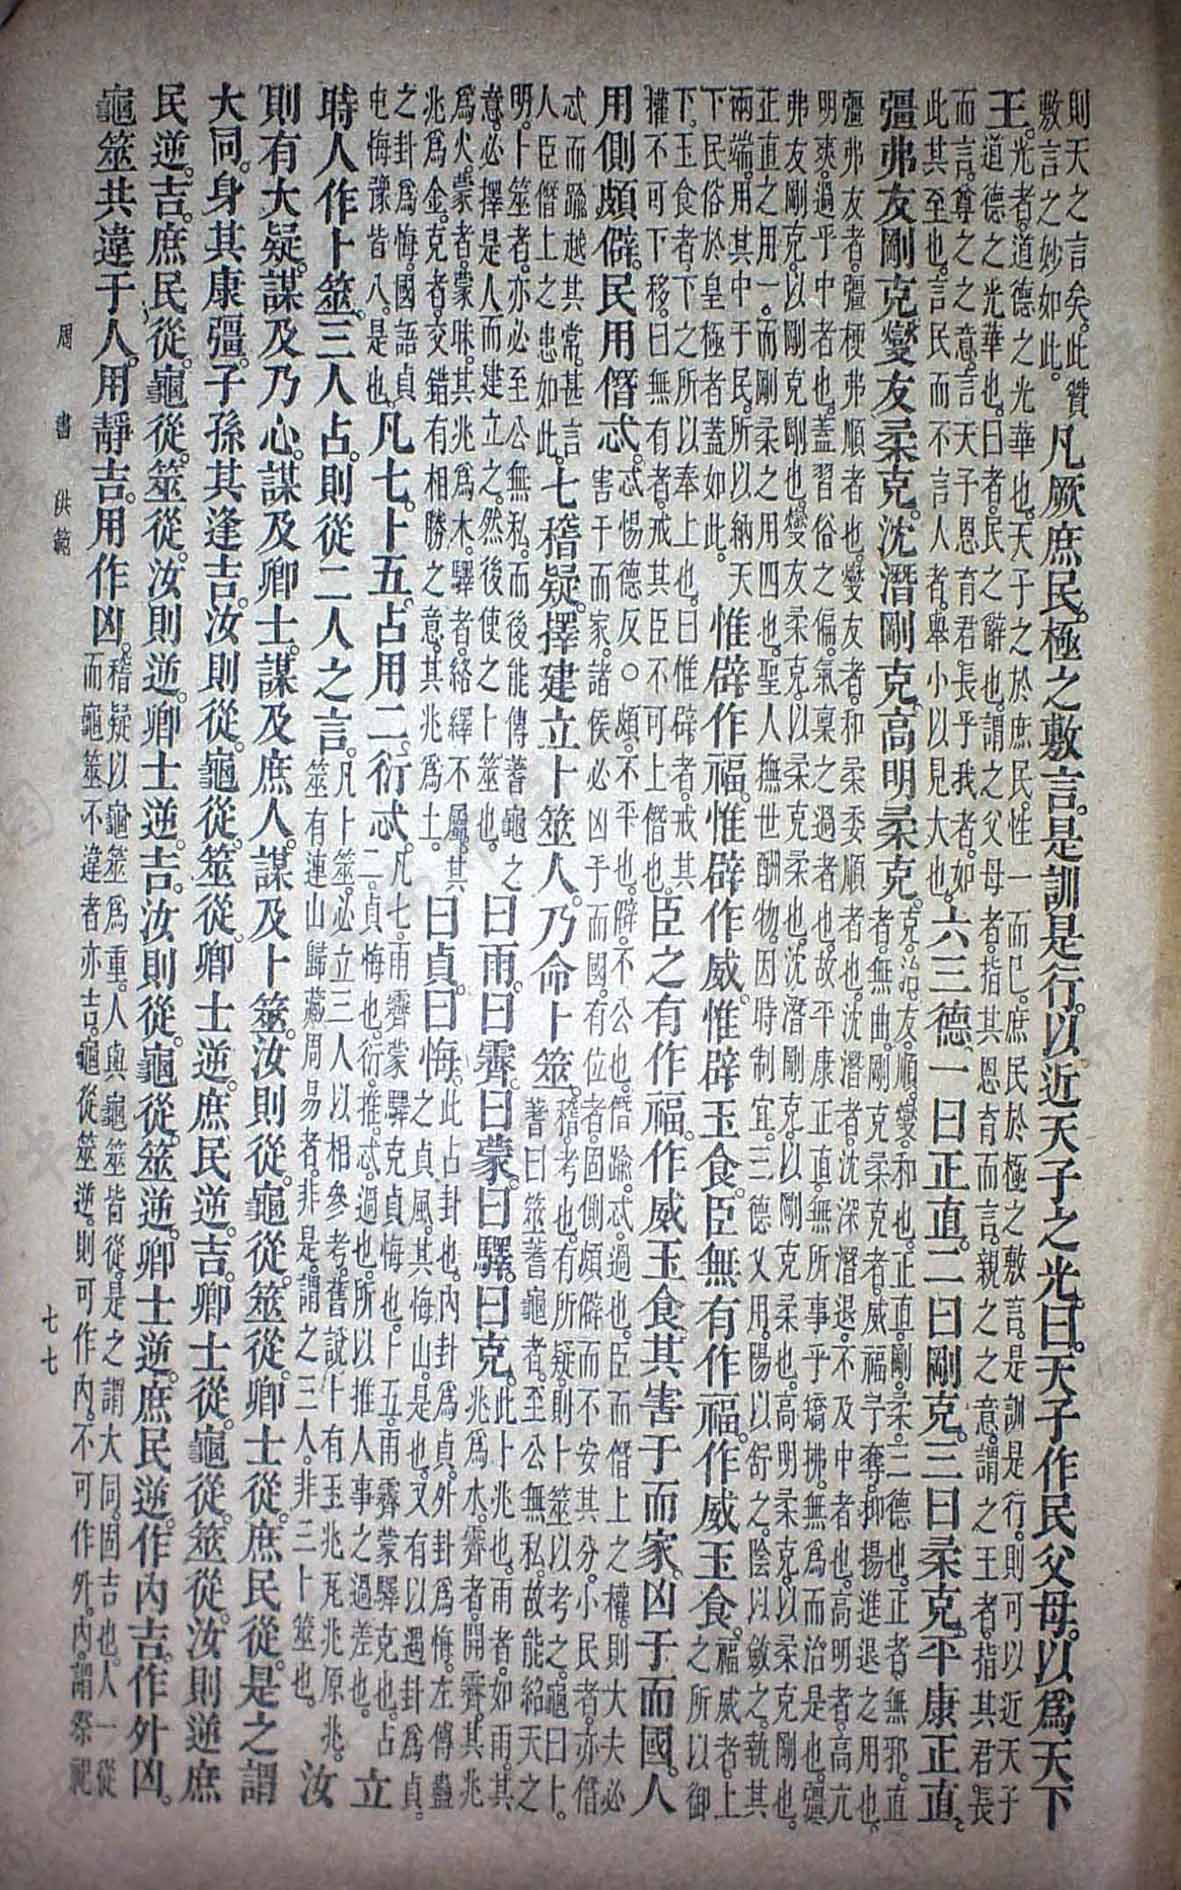 則天之言矣。此贊
敷言之妙如此。
凡厥庶民。極之敷言。是訓是行。以近天子之光。曰。天子作民父母。以爲天下
王。
光者。道德之光華也。天子之於庶民。性一而已。庶民於極之敷言。是訓是行。則可以近天子
道德之光華也。曰者。民之辭也。謂之父母者。指其恩育而言。親之之意。謂之王者。指其君長
而言。尊之之意。言天子恩育君長乎我者。如
此其至也。言民而不言人者。舉小以見大也。
六三德。一曰正直。二曰剛克。三曰柔克。平康正直。
彊弗友剛克。燮友柔克。沈潛剛克。高明柔克。
克。治。友。順。燮。和也。正直。剛。柔。三德也。正者。無邪。直
者。無曲。剛克柔克者。威福予奪。抑揚進退之用也。
彊弗友者。彊梗弗順者也。燮友者。和柔委順者也。沈潛者。沈深潛退。不及中者也。高明者。高亢
明爽。過乎中者也。蓋習俗之偏。氣稟之過者也。故平康正直。無所事乎矯拂。無爲而治是也。彊
弗友剛克。以剛克剛也。燮友柔克。以柔克柔也。沈潛剛克。以剛克柔也。高明柔克。以柔克剛也。
正直之用一。而剛柔之用四也。聖人撫世酬物。因時制宜。三德乂用。陽以舒之。陰以斂之。執其
兩端。用其中于民。所以納天
下民俗於皇極者。蓋如此。
惟辟作福。惟辟作威。惟辟玉食。臣無有作福。作威玉食。
福威者。上
之所以御
下。玉食者。下之所以奉上也。曰惟辟者。戒其
權不可下移。曰無有者。戒其臣不可上僭也。
臣之有作福。作威玉食。其害于而家。凶于而國。人
用側頗僻。民用僭忒。
忒惕德反。○頗。不平也。僻。不公也。僭。踰。忒。過也。臣而僭上之權。則大夫必
害于而家。諸侯必凶于而國。有位者。固側頗僻而不安其分。小民者。亦僭
忒而踰越其常。甚言
人臣僭上之患如此。
七稽疑。擇建立卜筮人。乃命卜筮。
稽。考也。有所疑。則卜筮以考之。龜曰卜。
蓍曰筮。蓍龜者。至公無私。故能紹天之
明。卜筮者。亦必至公無私。而後能傳蓍龜之
意。必擇是人而建立之。然後使之卜筮也。
曰雨。曰霽。曰蒙。曰驛。曰克。
此卜兆也。雨者。如雨。其
兆爲水。霽者。開霽。其兆
爲火。蒙者。蒙昧。其兆爲木。驛者。絡繹不屬。其
兆爲金。克者。交錯有相勝之意。其兆爲土。
曰貞。曰悔。
此占卦也。內卦爲貞。外卦爲悔。左傳蠱
之貞風。其悔山。是也。又有以遇卦爲貞。
之卦爲悔。國語貞
屯悔豫皆八。是也。
凡七。卜五。占用二。衍忒。
凡七。雨霽蒙驛克貞悔也。卜五。雨霽蒙驛克也。占
二。貞悔也。衍。推。忒。過也。所以推人事之過差也。
立
時人作卜筮。三人占。則從二人之言。
凡卜筮。必立三人。以相參考。舊說。卜有玉兆瓦兆原兆。
筮有連山歸藏周易者。非是。謂之三人。非三卜筮也。
汝
則有大疑。謀及乃心。謀及卿士。謀及庶人。謀及卜筮。汝則從。龜從。筮從。卿士從。庶民從。是之謂
大同。身其康彊。子孫其逢吉。汝則從。龜從。筮從。卿士逆。庶民逆。吉。卿士從。龜從。筮從。汝則逆。庶
民逆。吉。庶民從。龜從。筮從。汝則逆。卿士逆。吉。汝則從。龜從。筮逆。卿士逆。庶民逆。作內吉。作外凶。
龜筮共違于人。用靜吉。用作凶。
稽疑以龜筮爲重。人與龜筮皆從。是之謂大同。固吉也。人一從
而龜筮不違者亦吉。龜從筮逆。則可作內。不可作外。內。謂祭祀
周書 洪範
七七